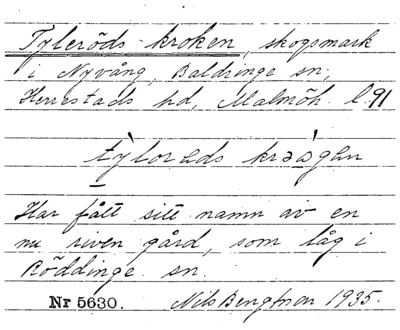 Tyleröds-kroken, skogsmark
i Nyvång, Baldringe sn,
Herrestads hd, Malmöh. l. 91
Har fått sitt namn av en
nu riven gård, som låg i
Röddinge sn.
Nr 5630. Nils Bengtsson 1935.